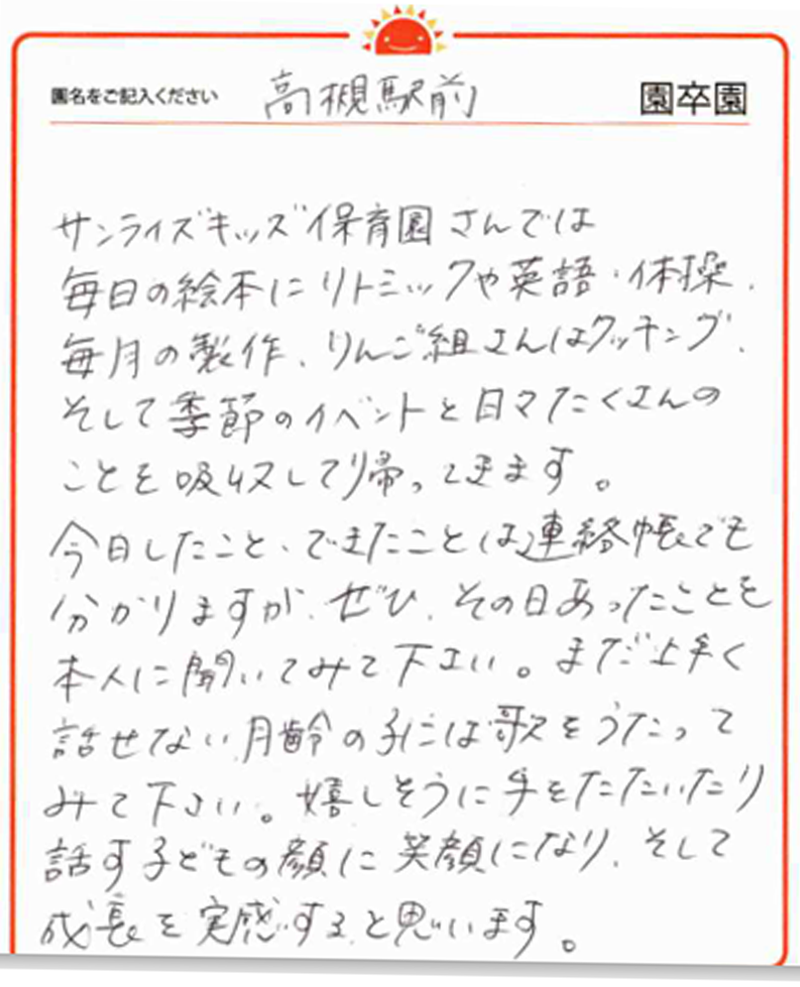 園名をご記入ください 高槻駅前 園卒園
サンライズキッズ保育園さんでは
毎日の絵本にリトミックや英語・体操、
毎月の製作、りんご組さんはクッキング、
そして季節のイベントと日々たくさんの
ことを吸収して帰ってきます。
今日したこと、できたことは連絡帳でも
分かりますが、ぜひ、その日あったことを
本人に聞いてみて下さい。まだ上手く
話せない月齢の子には歌をうたって
みて下さい。嬉しそうに手をたたいたり
話す子どもの顔に笑顔になり、そして
成長を実感すると思います。